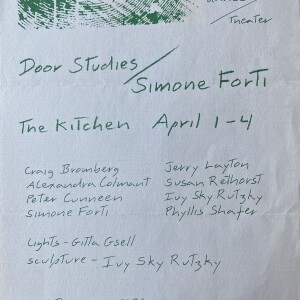 Theater
Door Studies / Simone Forti
The Kitchen April 1-4
Craig Bromberg Jerry Layton
Alexandra Colmant Susan Rethorst
Peter Cunneen Ivy Sky Rutzky
Simone Forti Phyllis Shafer
Lights - Gitta Gsell
sculpture - Ivy Sky Rutzky